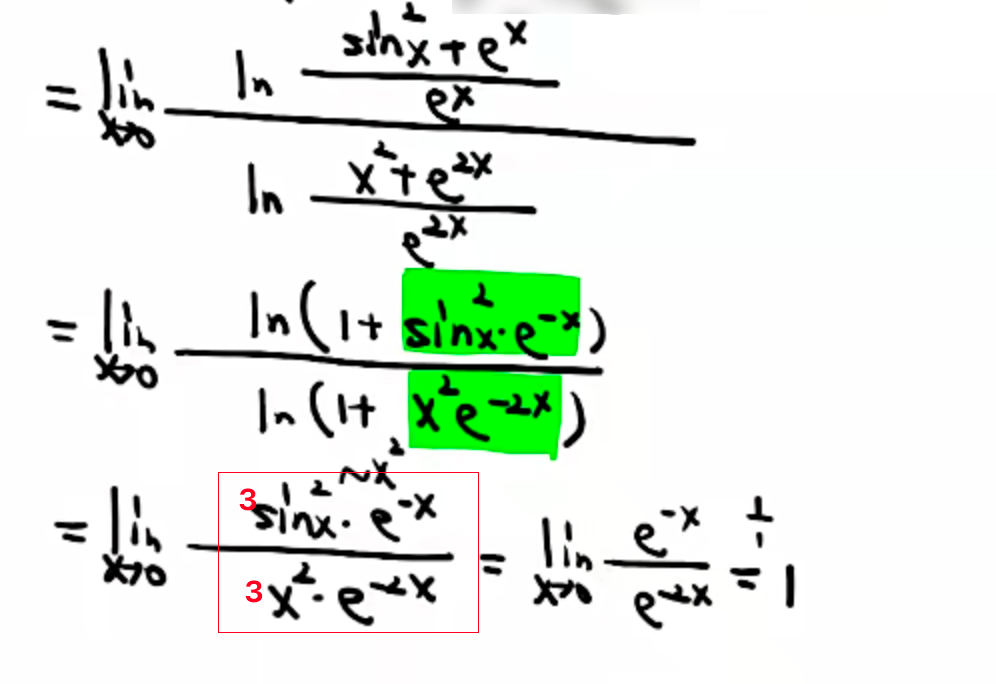 = lim x→0 ln (sin²x + e^x)/e^x / ln (x² + e^2x)/e^2x
= lim x→0 ln(1 + sin²x · e^-x) / ln(1 + x² e^-2x)
~x²
= lim x→0 3 sin²x · e^-x / 3 x² · e^-2x = lim x→0 e^-x / e^-2x = 1/1 1